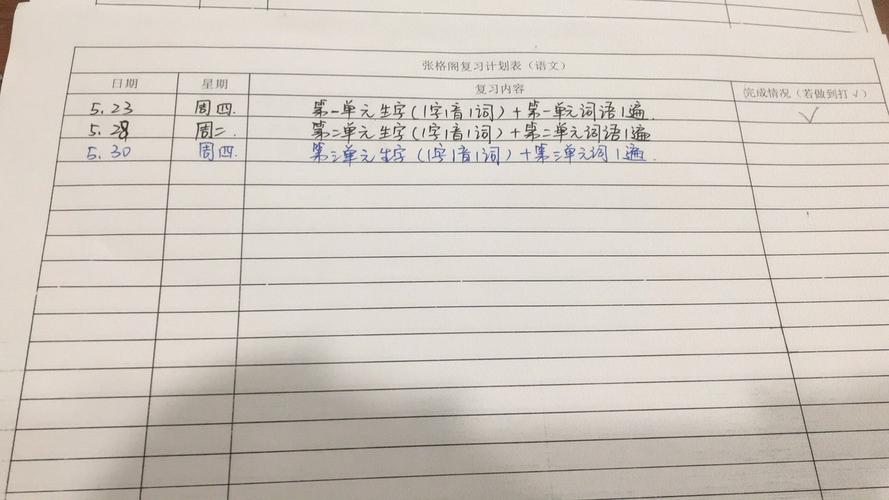 张格阁复习计划表（语文）
日期 星期 复习内容 完成情况（若做到打√）
5.23 周四. 第一单元生字(1字1音1词)+第一单元词语1遍. √
5.28 周二. 第二单元生字(1字1音1词)+第二单元词语1遍
5.30 周四. 第三单元生字(1字1音1词)+第三单元词1遍.